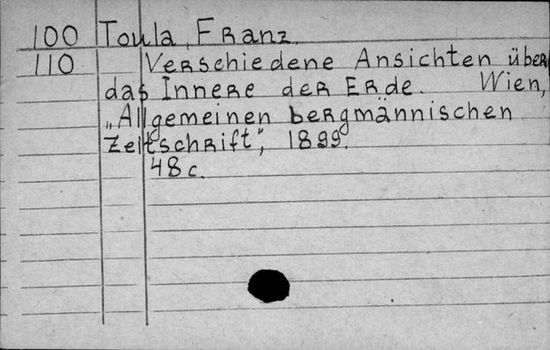 100 Toula, Franz.
110 Verschiedene Ansichten über
das Innere der Erde. Wien,
„Allgemeinen bergmännischen
Zeitschrift", 1899.
48 c.